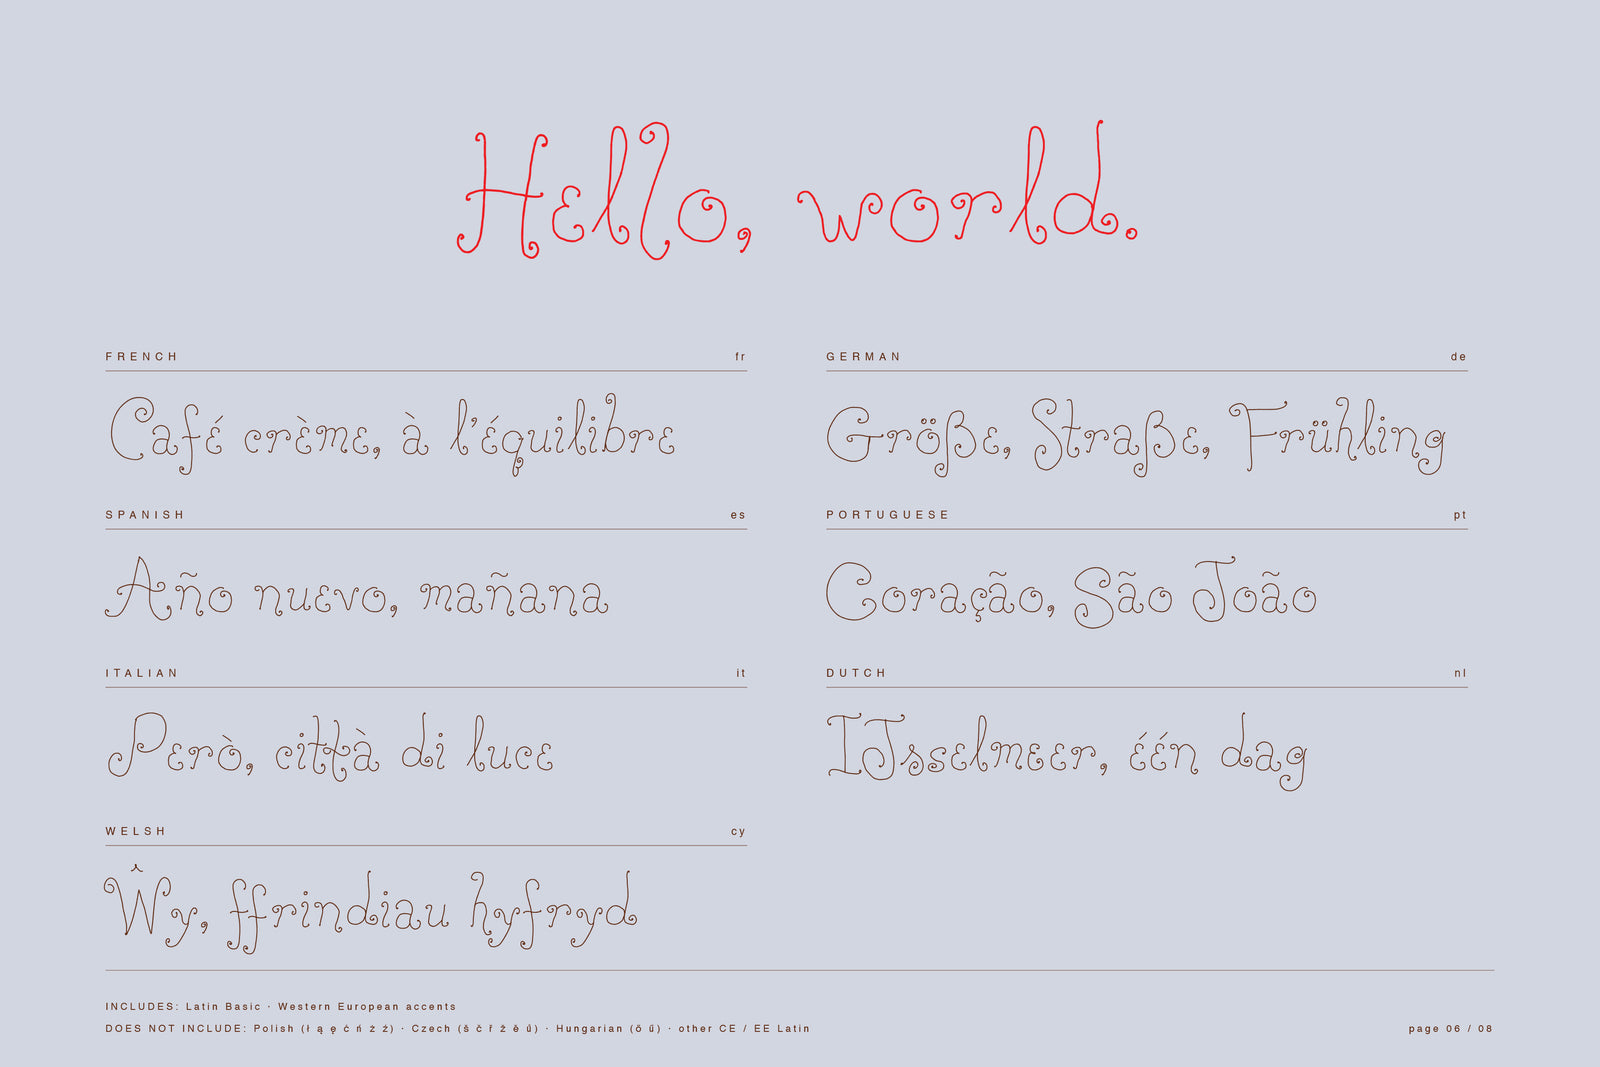 Hello, world.
FRENCH fr
Café crème, à l’équilibre
GERMAN de
Größe, Straße, Frühling
SPANISH es
Año nuevo, mañana
PORTUGUESE pt
Coração, São João
ITALIAN it
Però, città di luce
DUTCH nl
IJsselmeer, één dag
WELSH cy
Ŵy, ffrindiau hyfryd
INCLUDES: Latin Basic · Western European accents
DOES NOT INCLUDE: Polish (ł ą ę ć ń ż ź) · Czech (š č ř ž ě ů) · Hungarian (ő ű) · other CE / EE Latin
page 06 / 08